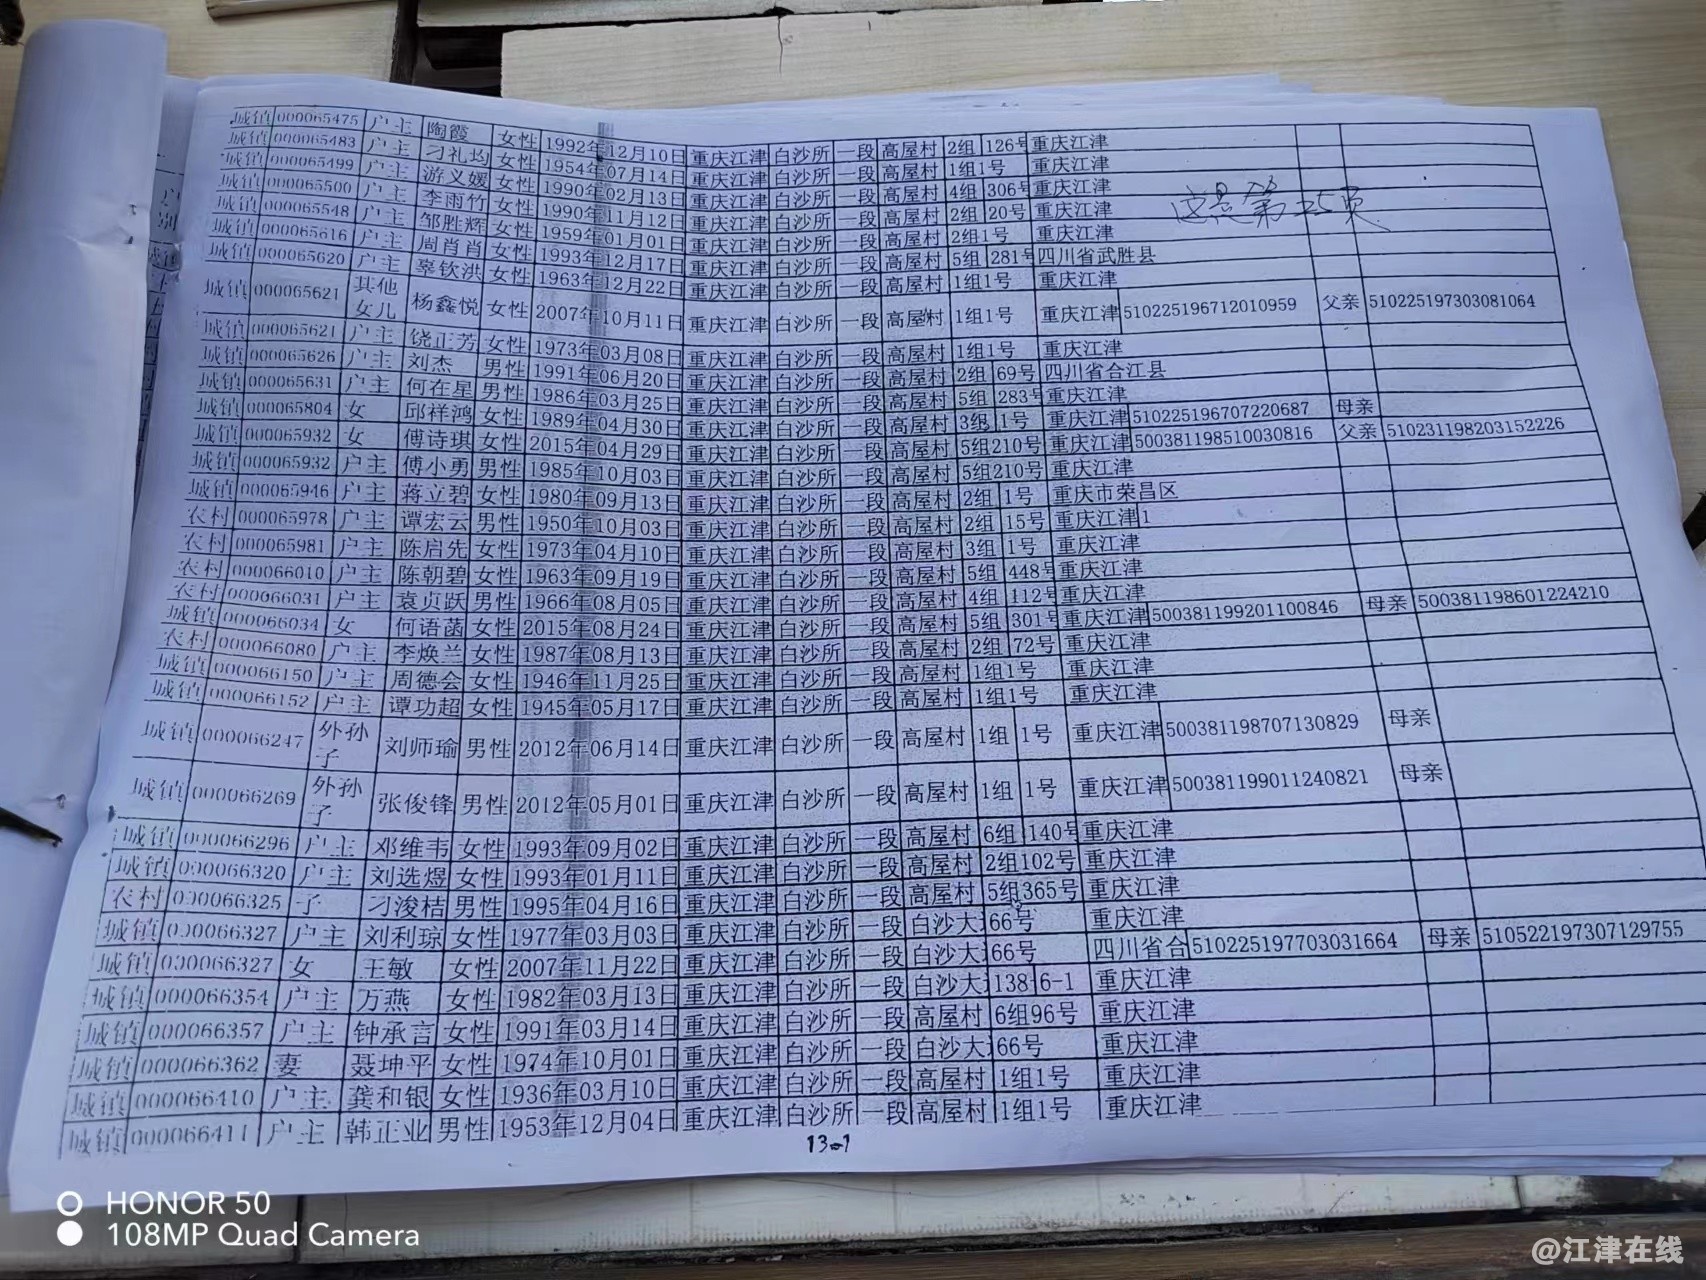 城镇 000065475 户主 陶霞 女性 1992年12月10日 重庆江津 白沙所 一段 高屋村 2组 126号 重庆江津
城镇 000065483 户主 刁礼均 女性 1954年07月14日 重庆江津 白沙所 一段 高屋村 1组1号 重庆江津
城镇 000065499 户主 游义媛 女性 1990年02月13日 重庆江津 白沙所 一段 高屋村 4组 306号 重庆江津
城镇 000065500 户主 李雨竹 女性 1990年11月12日 重庆江津 白沙所 一段 高屋村 2组 20号 重庆江津
这是第25页
城镇 000065548 户主 邹胜辉 女性 1959年01月01日 重庆江津 白沙所 一段 高屋村 2组1号 重庆江津
城镇 000065616 户主 周肖肖 女性 1993年12月17日 重庆江津 白沙所 一段 高屋村 5组 281号 四川省武胜县
城镇 000065620 户主 辜钦洪 女性 1963年12月22日 重庆江津 白沙所 一段 高屋村 1组1号 重庆江津
城镇 000065621 其他女儿 杨鑫悦 女性 2007年10月11日 重庆江津 白沙所 一段 高屋村 1组1号 重庆江津 510225196712010959 父亲 510225197303081064
城镇 000065621 户主 饶正芳 女性 1973年03月08日 重庆江津 白沙所 一段 高屋村 1组1号 重庆江津
城镇 000065626 户主 刘杰 男性 1991年06月20日 重庆江津 白沙所 一段 高屋村 2组 69号 四川省合江县
城镇 000065631 户主 何在星 男性 1986年03月25日 重庆江津 白沙所 一段 高屋村 5组 283号 重庆江津
城镇 000065804 女 邱祥鸿 女性 1989年04月30日 重庆江津 白沙所 一段 高屋村 3组 1号 重庆江津 510225196707220687 母亲
城镇 000065932 女 傅诗琪 女性 2015年04月29日 重庆江津 白沙所 一段 高屋村 5组210号 重庆江津 500381198510030816 父亲 510231198203152226
城镇 000065932 户主 傅小勇 男性 1985年10月03日 重庆江津 白沙所 一段 高屋村 5组210号 重庆江津
城镇 000065946 户主 蒋立碧 女性 1980年09月13日 重庆江津 白沙所 一段 高屋村 2组 1号 重庆市荣昌区
农村 000065978 户主 谭宏云 男性 1950年10月03日 重庆江津 白沙所 一段 高屋村 2组 15号 重庆江津1
农村 000065981 户主 陈启先 女性 1973年04月10日 重庆江津 白沙所 一段 高屋村 3组 1号 重庆江津
农村 000066010 户主 陈朝碧 女性 1963年09月19日 重庆江津 白沙所 一段 高屋村 5组 448号 重庆江津
农村 000066031 户主 袁贞跃 男性 1966年08月05日 重庆江津 白沙所 一段 高屋村 4组 112号 重庆江津
城镇 000066034 女 何语菡 女性 2015年08月24日 重庆江津 白沙所 一段 高屋村 5组 301号 重庆江津 500381199201100846 母亲 500381198601224210
农村 000066080 户主 李焕兰 女性 1987年08月13日 重庆江津 白沙所 一段 高屋村 2组 72号 重庆江津
城镇 000066150 户主 周德会 女性 1946年11月25日 重庆江津 白沙所 一段 高屋村 1组1号 重庆江津
城镇 000066152 户主 谭功超 女性 1945年05月17日 重庆江津 白沙所 一段 高屋村 1组1号 重庆江津
城镇 000066247 外孙子 刘师瑜 男性 2012年06月14日 重庆江津 白沙所 一段 高屋村 1组 1号 重庆江津 500381198707130829 母亲
城镇 000066269 外孙子 张俊锋 男性 2012年05月01日 重庆江津 白沙所 一段 高屋村 1组 1号 重庆江津 500381199011240821 母亲
城镇 000066296 户主 邓维韦 女性 1993年09月02日 重庆江津 白沙所 一段 高屋村 6组 140号 重庆江津
城镇 000066320 户主 刘选煜 女性 1993年01月11日 重庆江津 白沙所 一段 高屋村 2组102号 重庆江津
农村 000066325 子 刁浚桔 男性 1995年04月16日 重庆江津 白沙所 一段 高屋村 5组365号 重庆江津
城镇 000066327 户主 刘利琼 女性 1977年03月03日 重庆江津 白沙所 一段 白沙大 66号 重庆江津
城镇 000066327 女 王敏 女性 2007年11月22日 重庆江津 白沙所 一段 白沙大 66号 四川省合 510225197703031664 母亲 510522197307129755
城镇 000066354 户主 万燕 女性 1982年03月13日 重庆江津 白沙所 一段 白沙大 138 6-1 重庆江津
城镇 000066357 户主 钟承言 女性 1991年03月14日 重庆江津 白沙所 一段 高屋村 6组96号 重庆江津
城镇 000066362 妻 聂坤平 女性 1974年10月01日 重庆江津 白沙所 一段 白沙大 66号 重庆江津
城镇 000066410 户主 龚和银 女性 1936年03月10日 重庆江津 白沙所 一段 高屋村 1组1号 重庆江津
城镇 000066411 户主 韩正业 男性 1953年12月04日 重庆江津 白沙所 一段 高屋村 1组1号 重庆江津
13-1
HONOR 50
108MP Quad Camera
@江津在线